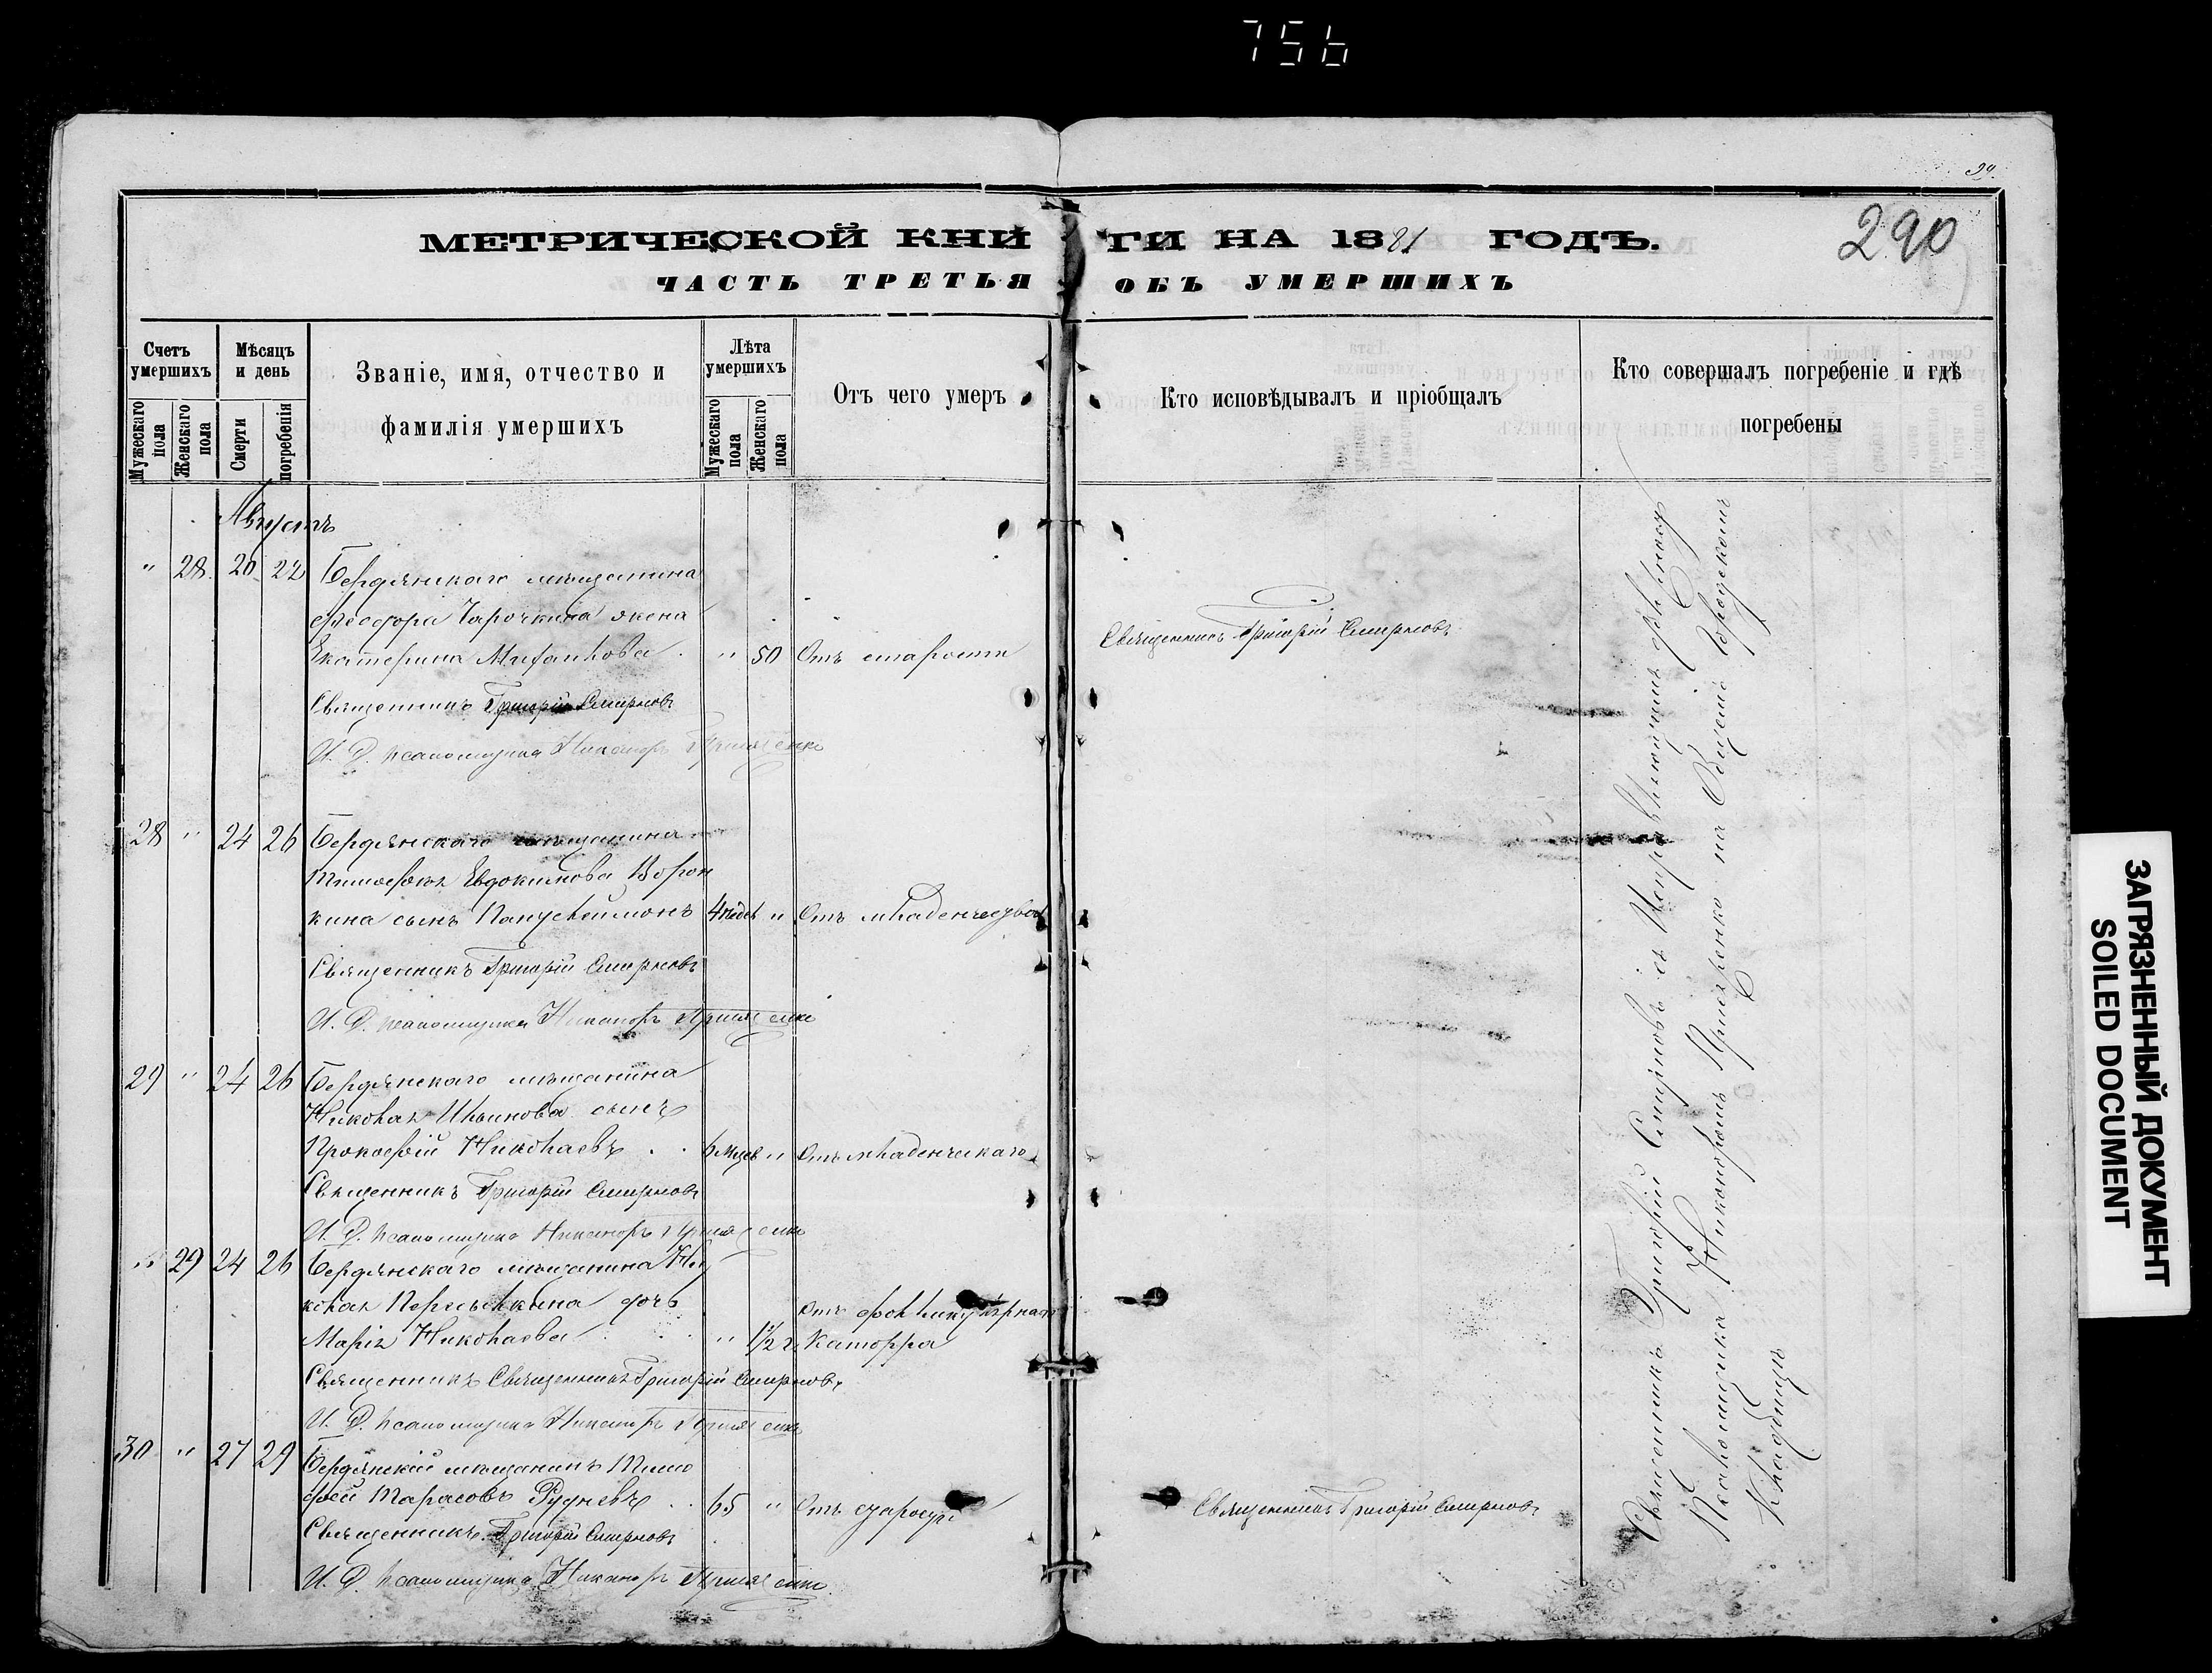 756
39
290
МЕТРИЧЕСКОЙ КНИГИ НА 1881 ГОДЪ.
ЧАСТЬ ТРЕТЬЯ ОБЪ УМЕРШИХЪ
Счетъ умершихъ
Мужескаго пола
Женскаго пола
Мѣсяцъ и день
Смерти
погребенія
Званіе, имя, отчество и
фамилія умершихъ
Лѣта умершихъ
Мужескаго пола
Женскаго пола
Отъ чего умеръ
Кто исповѣдывалъ и пріобщалъ
Кто совершалъ погребеніе и гдѣ
погребены
Августъ
" 28 20 22 Бердянскаго мѣщанина
Ѳеодора Чарочкина жена
Екатерина " 50 Отъ старости Священникъ Григорій Смирновъ
Священникъ Григорій Смирновъ
И. Д. псаломщика Никаноръ
28 " 24 26 Бердянскаго мѣщанина
Тимоѳея Евдокимова Ворон
кина сынъ Пантелеимонъ 4 " Отъ
Священникъ Григорій Смирновъ
И. Д. псаломщика Никаноръ
29 " 24 26 Бердянскаго мѣщанина
Николая Ильинова сынъ
Прокофій Николаевъ 6 мцев " Отъ младенческаго
Священникъ Григорій Смирновъ
И. Д. псаломщика Никаноръ
" 29 24 26 Бердянскаго мѣщанина Ни
колая дочь
Марія Николаева " 1 1/2 г.
Священникъ Священникъ Григорій Смирновъ
И. Д. псаломщика Никаноръ
30 " 27 29 Бердянскій мѣщанинъ Тимо
фей Тарасовъ Рудневъ 65 " Отъ старости Священникъ Григорій Смирновъ
Священникъ Григорій Смирновъ
И. Д. псаломщика Никаноръ
Священникъ Григорій Смирновъ съ Исправляющимъ должность
Псаломщика Никаноромъ на Общемъ городскомъ
Кладбищѣ
ЗАГРЯЗНЕННЫЙ ДОКУМЕНТ
SOILED DOCUMENT